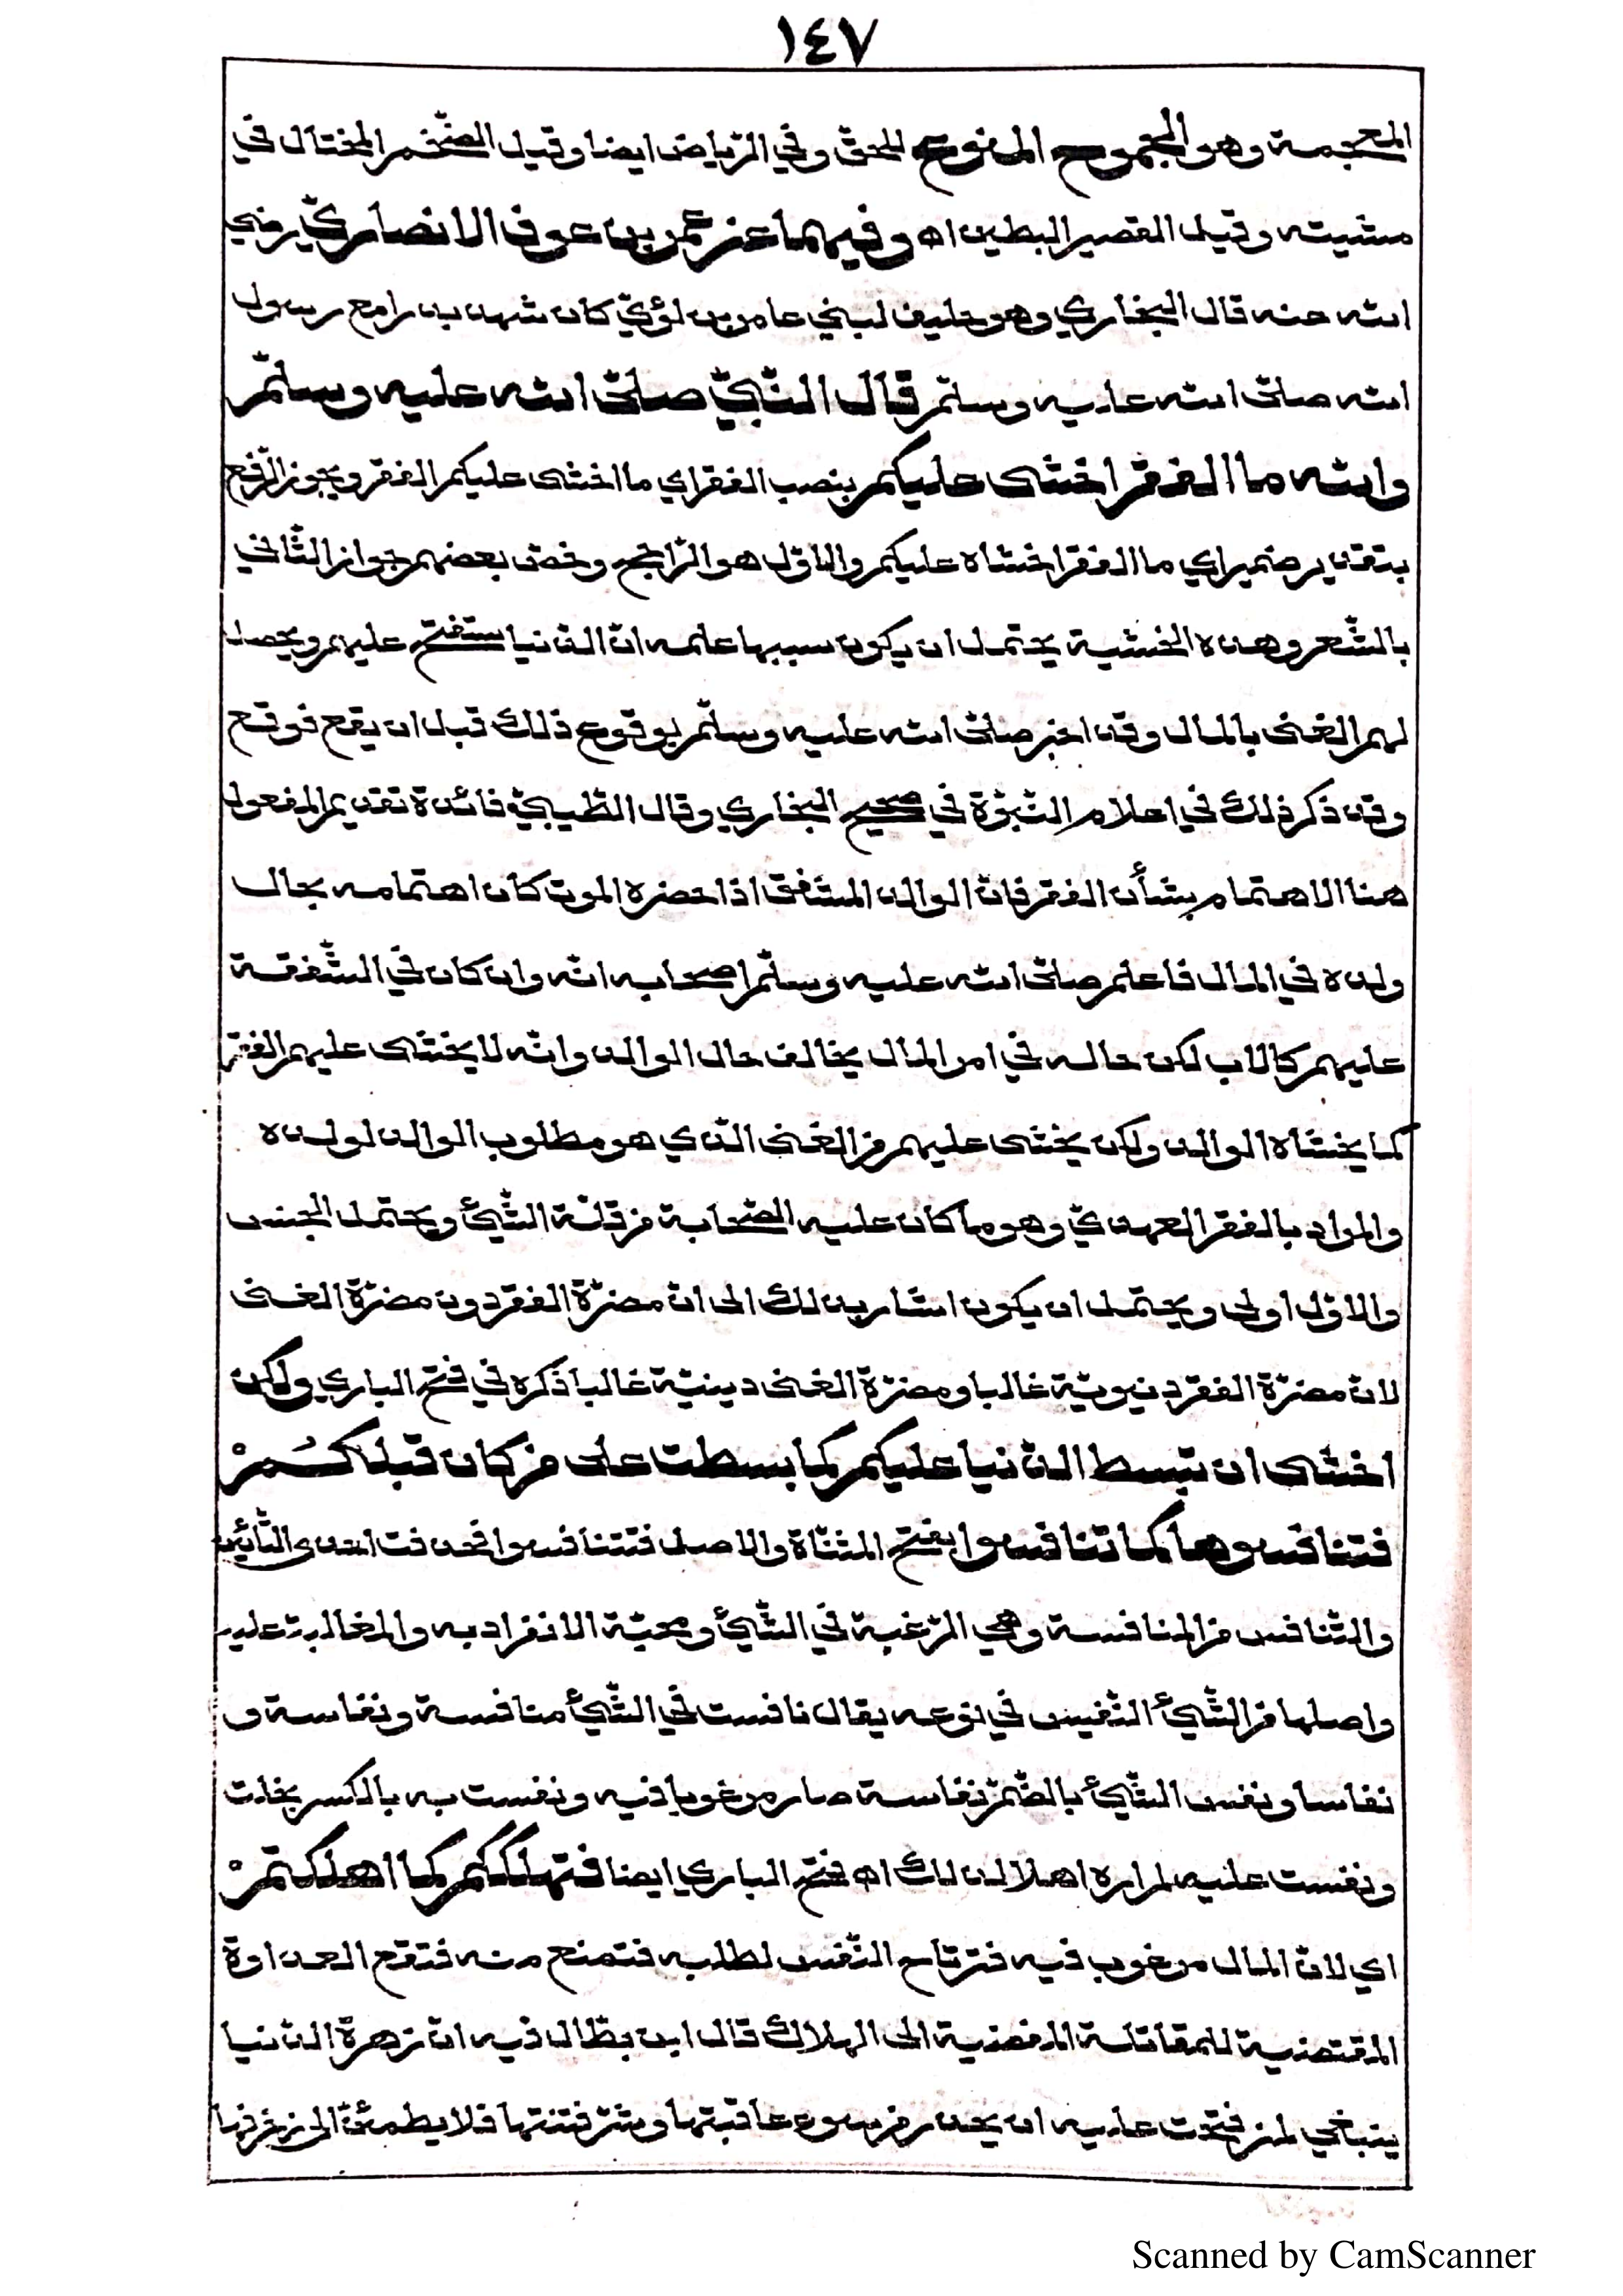 ١٤٧
المعجمة وهو الجموح المنوع للحق وفي الرّياض ايضا وقيل الضّخم المختال في
مشيته وقيل القصير البطين اه وفيهما عن عمرو بن عوف الانصاريّ رضي
الله عنه قال البخاري وهو حليف لبني عامر بن لؤيّ كان شهد بدرا مع رسول
الله صلى الله عليه وسلّم قال النّبيّ صلى الله عليه وسلّم
والله ما الفقر اخشى عليكم بنصب الفقر اي ما اخشى عليكم الفقر ويجوز الرّفع
بتقدير ضمير اي ما الفقر اخشاه عليكم والاوّل هو الرّاجح وخصّ بعضهم جواز الثّاني
بالشّعر وهذه الخشية يحتمل ان يكون سببها علمه انّ الدّنيا ستفتح عليهم ويحصل
لهم الغنى بالمال وقد اخبر صلى الله عليه وسلّم بوقوع ذلك قبل ان يقع فوقع
وقد ذكر ذلك في اعلام النّبوّة في صحيح البخاري وقال الطّيبيّ فائدة تقديم المفعول
هنا الاهتمام بشأن الفقر فانّ الوالد المشفق اذا حضره الموت كان اهتمامه بحال
ولده في المال فاعلم صلى الله عليه وسلّم اصحابه انّه وان كان في الشّفقة
عليهم كالاب لكن حاله في امر المال يخالف حال الوالد وانّه لا يخشى عليهم الفقر
كما يخشاه الوالد ولكن يخشى عليهم من الغنى الّذي هو مطلوب الوالد لولده
والمراد بالفقر العهديّ وهو ما كان عليه الصّحابة من قلّة الشّيئ ويحتمل الجنس
والاوّل اولى ويحتمل ان يكون اشار بذلك الى انّ مضرّة الفقر دون مضرّة الغنى
لانّ مضرّة الفقر دنيويّة غالبا ومضرّة الغنى دينيّة غالبا ذكره في فتح الباري ولكن
اخشى ان تبسط الدّنيا عليكم كما بسطت على من كان قبلكُمْ
فتنافسوها كما تنافسوا بفتح المثنّاة والاصل فتتنافسوا فحذفت احدى التّائين
والتّنافس من المنافسة وهي الرّغبة في الشّيئ ومحبّة الانفراد به والمغالبة عليه
واصلها من الشّيئ النّفيس في نوعه يقال نافست في الشّيئ منافسة ونفاسة و
نفاسا ونفس الشّيئ بالضّمّ نفاسة صار مرغوبا فيه ونفست به بالكسر بخلت
ونفست عليه لم اره اهلا لذلك اه فتح الباري ايضا فتهلككم كما اهلكتهمْ
اي لانّ المال مرغوب فيه فترتاح النّفس لطلبه فتمنع منه فتقع العداوة
المقتضية للمقاتلة المفضية الى الهلاك قال ابن بطّال فيه انّ زهرة الدّنيا
ينبغي لمن فتحت عليه ان يحذر من سوء عاقبتها وشرّ فتنتها فلا يطمئنّ الى زخرفها
Scanned by CamScanner